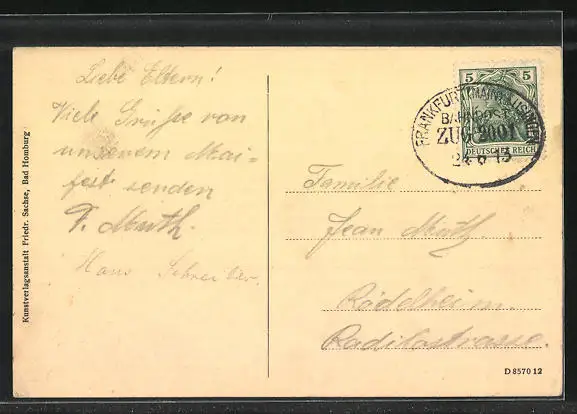 Liebe Eltern!
Viele Grüsse von
unserem Mai-
fest senden
F. Muth.
Hans Schreiber.
Kunstverlagsanstalt Friedr. Sachse, Bad Homburg
5 5
DEUTSCHES REICH
FRANKFURT (MAIN) - USINGEN
BAHNPOST
ZUG 2001
24 6 13
Familie
Jean Muth.
Rödelheim.
Radilostrasse.
D 8570 12